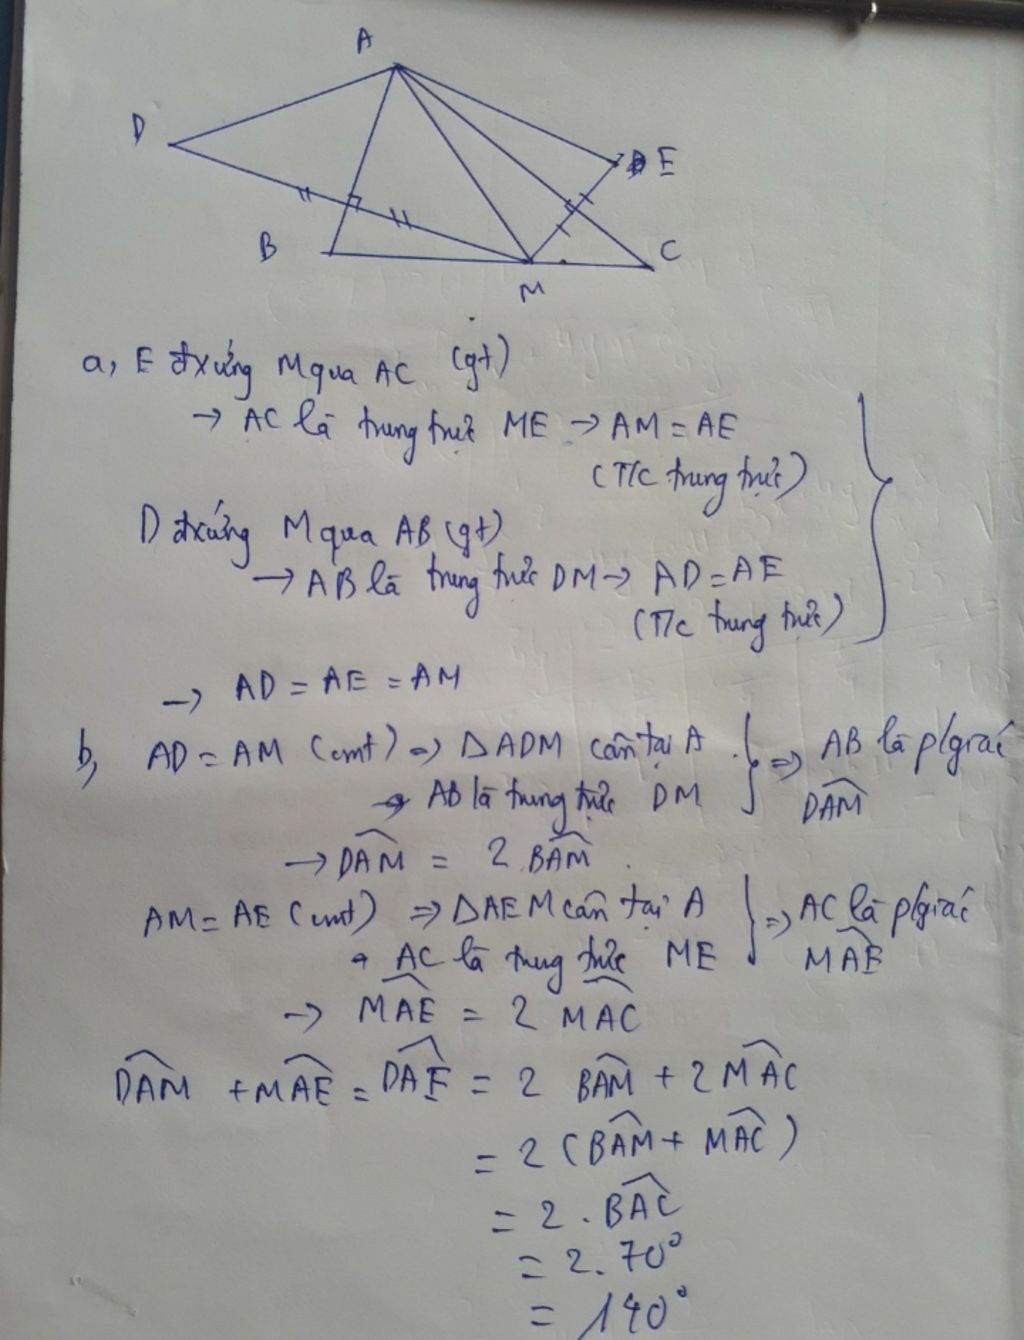 A
D
E
B
C
M
a, E đxứng M qua AC (gt)
→ AC là trung trực ME → AM = AE
(T/c trung trực)
D đxứng M qua AB (gt)
→ AB là trung trực DM → AD = AE
(T/c trung trực)
→ AD = AE = AM
b, AD = AM (cmt) => ΔADM cân tại A
AB là trung trực DM
=> AB là p/giác
DAM
→ DAM = 2 BAM.
AM = AE (cmt) => ΔAEM cân tại A
AC là trung trực ME
=> AC là p/giác
MAE
→ MAE = 2 MAC
DAM + MAE = DAE = 2 BAM + 2 MAC
= 2 (BAM + MAC)
= 2 . BAC
= 2. 70°
= 140°